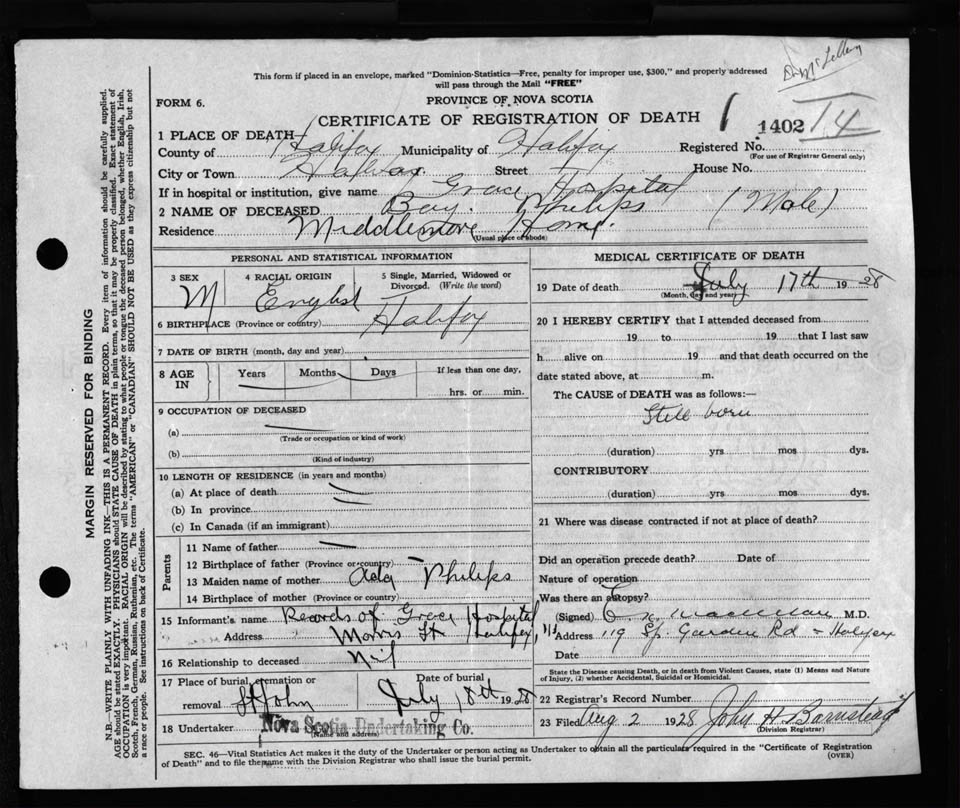 This form if placed in an envelope, marked "Dominion-Statistics—Free, penalty for improper use, $300," and properly addressed
will pass through the Mail "FREE"
FORM 6.
PROVINCE OF NOVA SCOTIA
CERTIFICATE OF REGISTRATION OF DEATH
1402
14
1 PLACE OF DEATH
County of Halifax Municipality of Halifax Registered No.
(For use of Registrar General only)
City or Town Halifax Street House No.
If in hospital or institution, give name Grace Hospital
2 NAME OF DECEASED Philips (Male)
Residence Middlemore Home.
(Usual place of abode)
PERSONAL AND STATISTICAL INFORMATION
3 SEX 4 RACIAL ORIGIN 5 Single, Married, Widowed or Divorced. (Write the word)
M English
6 BIRTHPLACE (Province or country) Halifax
7 DATE OF BIRTH (month, day and year)
8 AGE IN Years Months Days If less than one day,
hrs. or min.
9 OCCUPATION OF DECEASED
(a)
(Trade or occupation or kind of work)
(b)
(Kind of industry)
10 LENGTH OF RESIDENCE (in years and months)
(a) At place of death
(b) In province
(c) In Canada (if an immigrant)
Parents
11 Name of father
12 Birthplace of father (Province or country)
13 Maiden name of mother Ada Philips
14 Birthplace of mother (Province or country)
15 Informant's name Records of Grace Hospital
Address Morris St Halifax
16 Relationship to deceased Nil
17 Place of burial, cremation or removal St John Date of burial July 18th 1928
18 Undertaker Nova Scotia Undertaking Co.
(Name and address)
MEDICAL CERTIFICATE OF DEATH
19 Date of death July 17th 1928
(Month, day and year)
20 I HEREBY CERTIFY that I attended deceased from
19 to 19 that I last saw
h alive on 19 and that death occurred on the
date stated above, at m.
The CAUSE of DEATH was as follows:—
Still born
(duration) yrs mos dys.
CONTRIBUTORY
(duration) yrs mos dys.
21 Where was disease contracted if not at place of death?
Did an operation precede death? Date of
Nature of operation
Was there an autopsy?
(Signed) M.D.
Address 119 Sp. Garden Rd - Halifax
Date
State the Disease causing Death, or in death from Violent Causes, state (1) Means and Nature
of Injury, (2) whether Accidental, Suicidal or Homicidal.
22 Registrar's Record Number
23 Filed Aug 2 1928 John H Barnstead
(Division Registrar)
SEC. 46—Vital Statistics Act makes it the duty of the Undertaker or person acting as Undertaker to obtain all the particulars required in the "Certificate of Registration
of Death" and to file the same with the Division Registrar who shall issue the burial permit. (OVER)
MARGIN RESERVED FOR BINDING
N.B.—WRITE PLAINLY WITH UNFADING INK—THIS IS A PERMANENT RECORD. Every item of information should be carefully supplied.
AGE should be stated EXACTLY. PHYSICIANS should STATE CAUSE OF DEATH in plain terms, so that it may be properly classified. Exact statement of
OCCUPATION is very important. RACIAL ORIGIN will be described by stating to what people or tongue the deceased person belonged, whether English, Irish,
Scotch, French, German, Russian, Ruthenian, etc. The terms "AMERICAN" or "CANADIAN" SHOULD NOT BE USED as they express citizenship but not
a race or people. See instructions on back of Certificate.